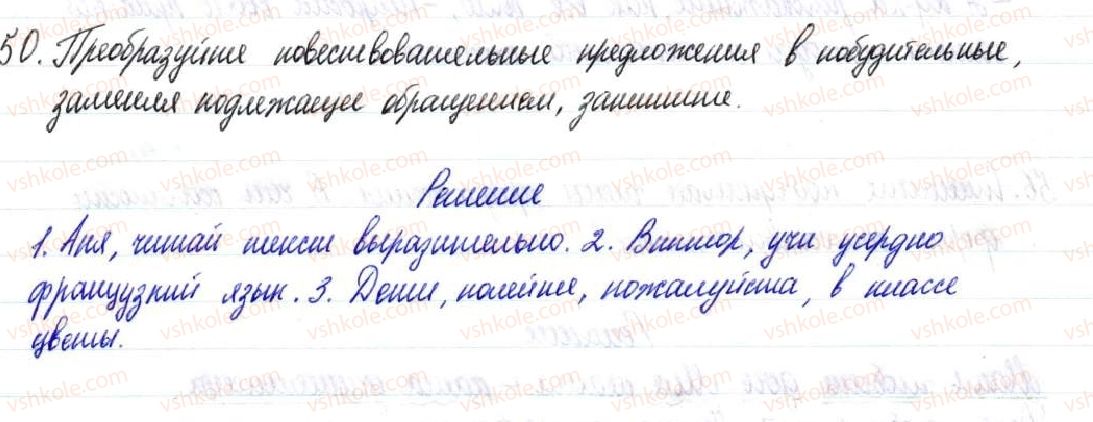 50. Преобразуйте повествовательные предложения в побудительные,
заменяя подлежащее обращением, запишите.
Решение
1. Аня, читай текст выразительно. 2. Виктор, учи усердно
французкий язык. 3. Дети, полейте, пожалуйста, в классе
цветы.